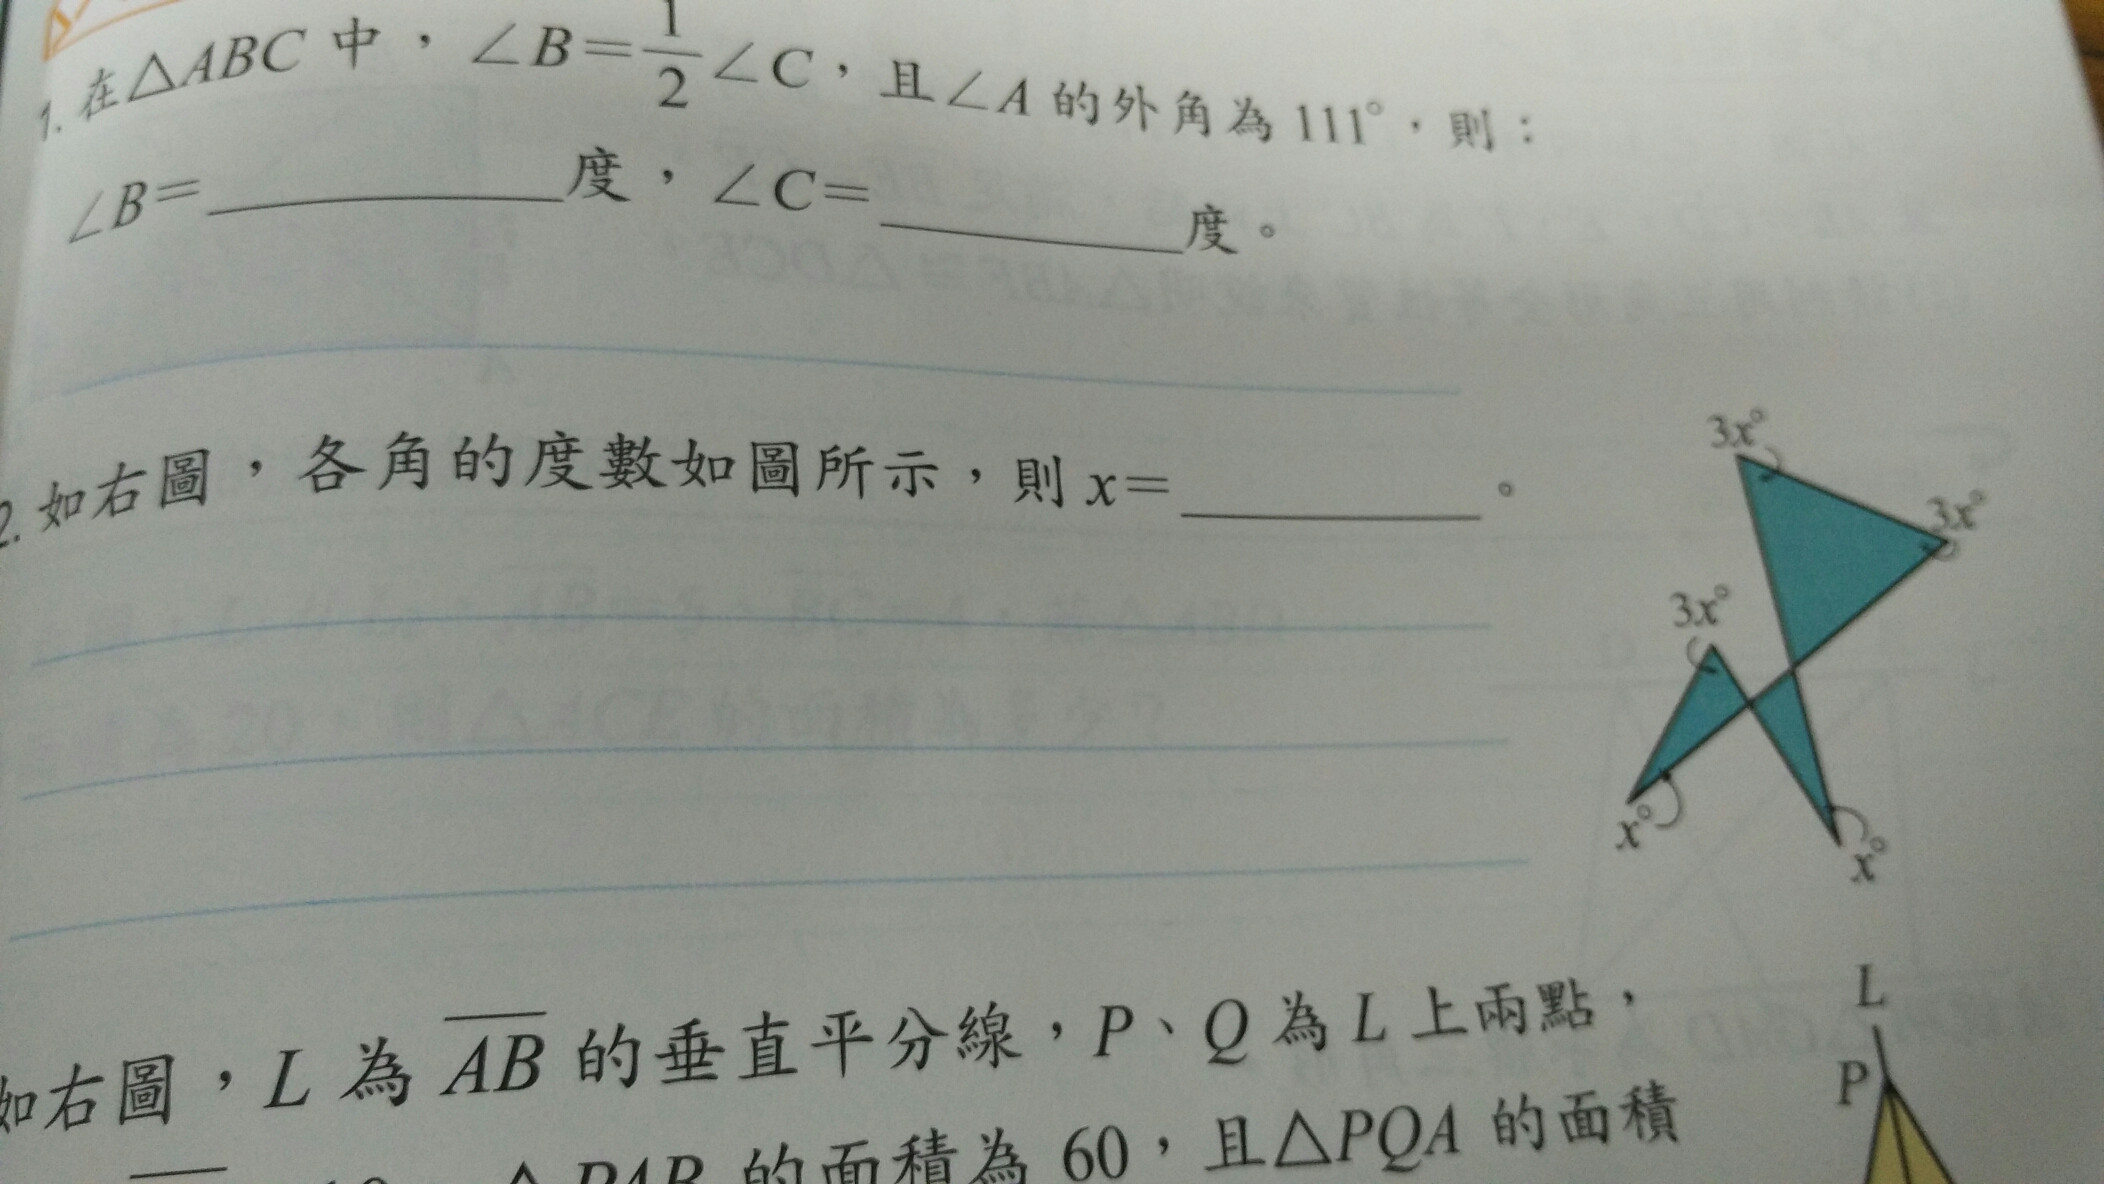 1. 在△ABC 中，∠B=1/2∠C，且∠A 的外角為 111°，則：
∠B=________度，∠C=________度。
2. 如右圖，各角的度數如圖所示，則 x=________。
3x°
3x°
3x°
x°
x°
如右圖，L 為 A̅B̅ 的垂直平分線，P、Q 為 L 上兩點，
L
P
的面積為 60，且△PQA 的面積